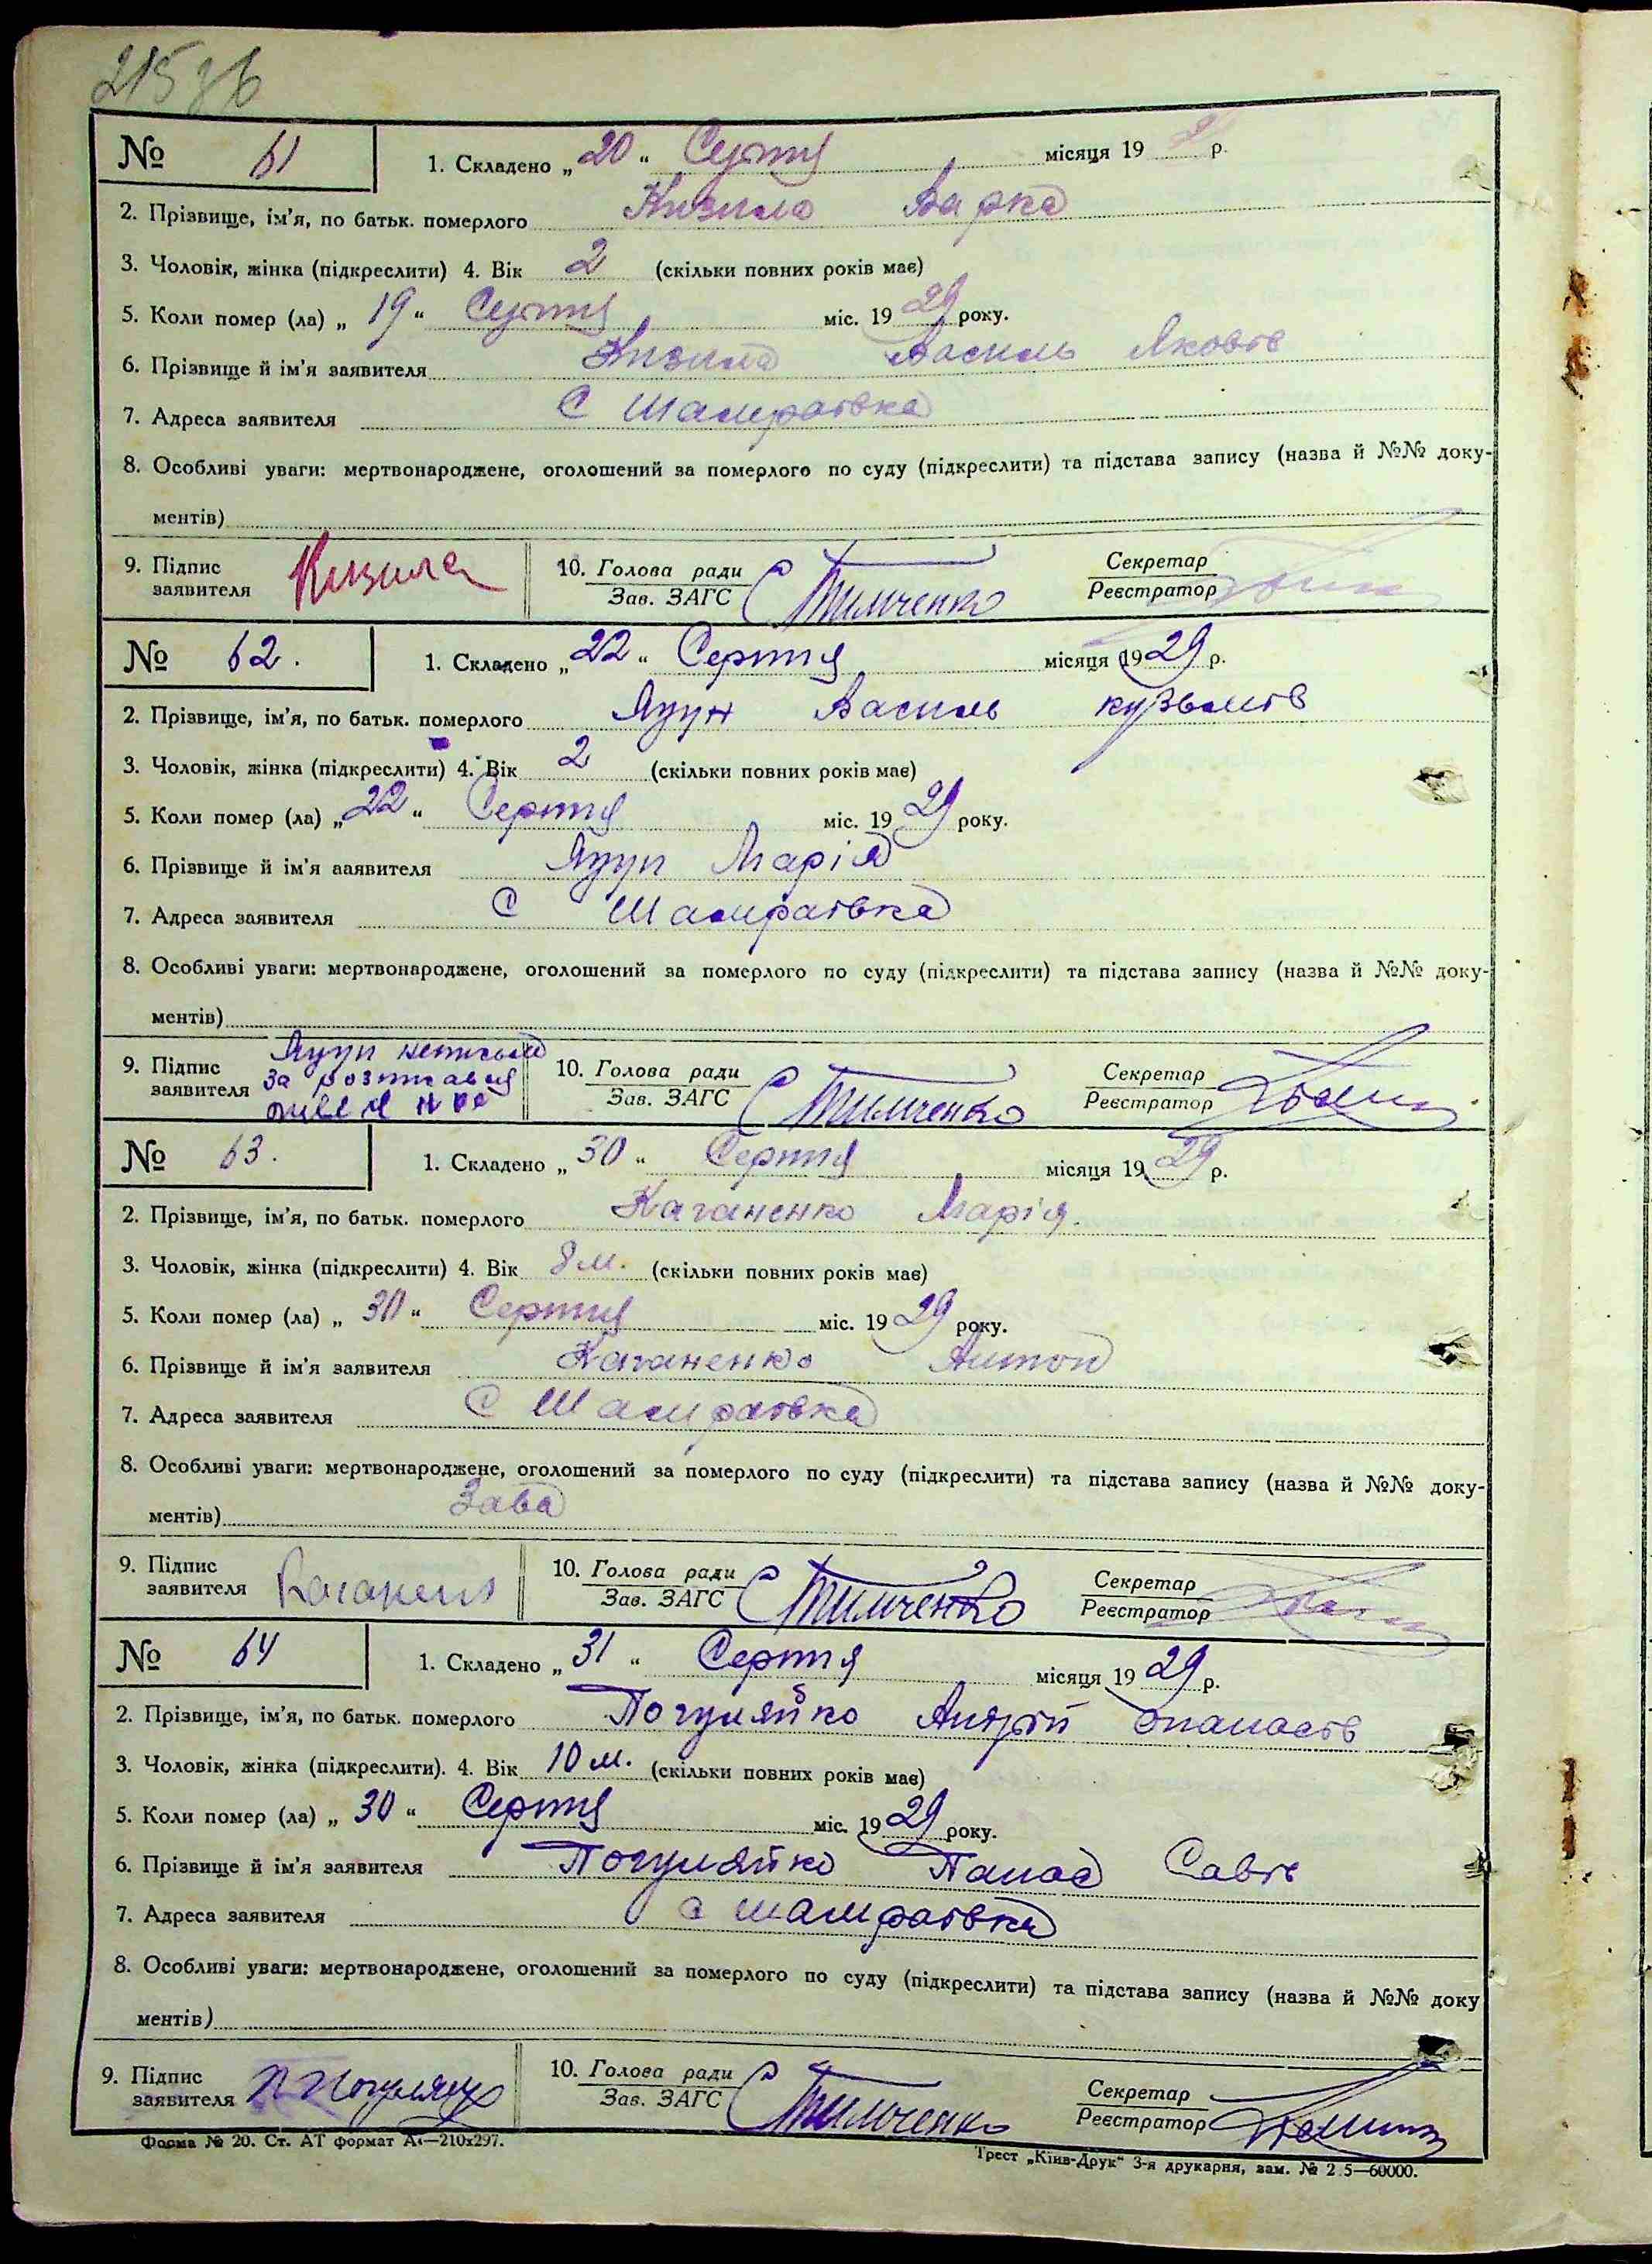 215 зв
№ 61 1. Складено „20“ Серпня місяця 19 р.
2. Прізвище, ім'я, по батьк. померлого Кизила Варка
3. Чоловік, жінка (підкреслити) 4. Вік 2 (скільки повних років має)
5. Коли помер (ла) „19“ Серпня міс. 1929 року.
6. Прізвище й ім'я заявителя Кизила Василь Яковів
7. Адреса заявителя С Шамраївка
8. Особливі уваги: мертвонароджене, оголошений за померлого по суду (підкреслити) та підстава запису (назва й №№ доку-
ментів)
9. Підпис заявителя Кизила 10. Голова ради Зав. ЗАГС Тимченко Секретар Реєстратор
№ 62. 1. Складено „22“ Серпня місяця 1929 р.
2. Прізвище, ім'я, по батьк. померлого Василь Кузьмів
3. Чоловік, жінка (підкреслити) 4. Вік 2 (скільки повних років має)
5. Коли помер (ла) „22“ Серпня міс. 1929 року.
6. Прізвище й ім'я заявителя Марія
7. Адреса заявителя С Шамраївка
8. Особливі уваги: мертвонароджене, оголошений за померлого по суду (підкреслити) та підстава запису (назва й №№ доку-
ментів)
9. Підпис заявителя за 10. Голова ради Зав. ЗАГС Тимченко Секретар Реєстратор
№ 63. 1. Складено „30“ Серпня місяця 1929 р.
2. Прізвище, ім'я, по батьк. померлого Каганенко Марія.
3. Чоловік, жінка (підкреслити) 4. Вік 8 м. (скільки повних років має)
5. Коли помер (ла) „30“ Серпня міс. 1929 року.
6. Прізвище й ім'я заявителя Каганенко Антон
7. Адреса заявителя С Шамраївка
8. Особливі уваги: мертвонароджене, оголошений за померлого по суду (підкреслити) та підстава запису (назва й №№ доку-
ментів) Зава
9. Підпис заявителя 10. Голова ради Зав. ЗАГС Тимченко Секретар Реєстратор
№ 64 1. Складено „31“ Серпня місяця 1929 р.
2. Прізвище, ім'я, по батьк. померлого Погуляйко Андрій Опанасів
3. Чоловік, жінка (підкреслити). 4. Вік 10 м. (скільки повних років має)
5. Коли помер (ла) „30“ Серпня міс. 1929 року.
6. Прізвище й ім'я заявителя Погуляйко Панас Савів
7. Адреса заявителя с Шамраївка
8. Особливі уваги: мертвонароджене, оголошений за померлого по суду (підкреслити) та підстава запису (назва й №№ доку
ментів)
9. Підпис заявителя 10. Голова ради Зав. ЗАГС Тимченко Секретар Реєстратор
Форма № 20. Ст. АТ формат А4—210x297.
Трест „Київ-Друк“ 3-я друкарня, зам. № 2 5—60000.